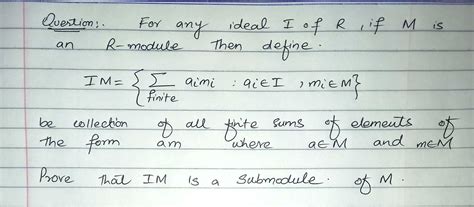 Question:. For any ideal I of R, if M is
an R-module Then define.
IM = { ∑ aimi : ai∈I , mi∈M}
finite
be collection of all finite sums of elements of
the form am where a∈M and m∈M
Prove that IM is a submodule. of M.